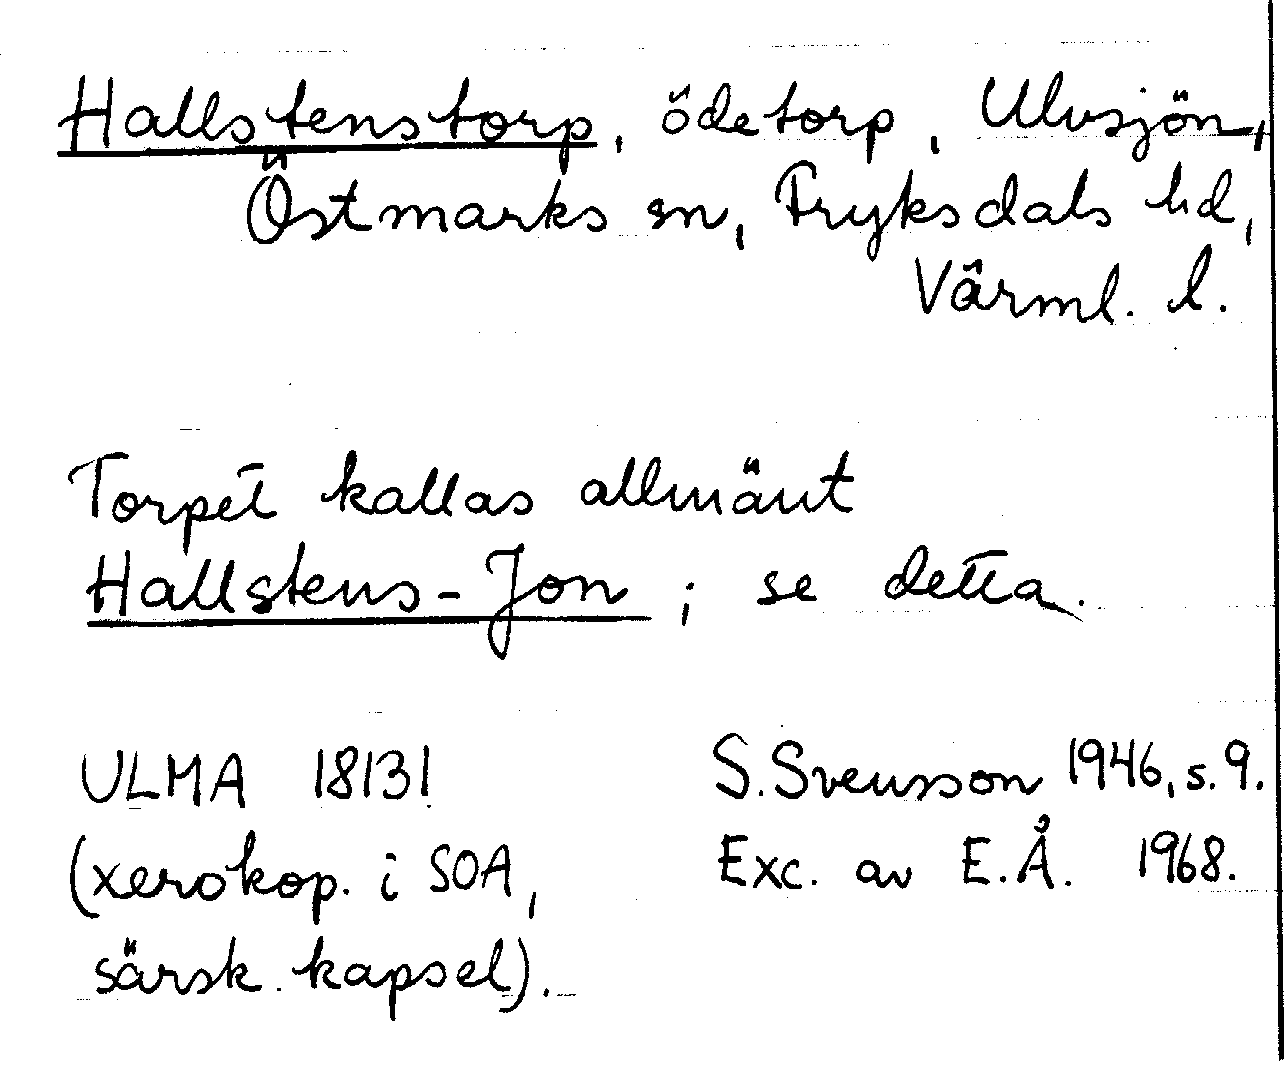 Hallstenstorp, ödetorp, Ulvsjön,
Östmarks sn, Fryksdals hd,
Värml. l.
Torpet kallas allmänt
Hallstens-Jon; se detta.
ULMA 18131 S. Svensson 1946, s. 9.
(xerokop. i SOA, Exc. av E.Å. 1968.
särsk. kapsel).